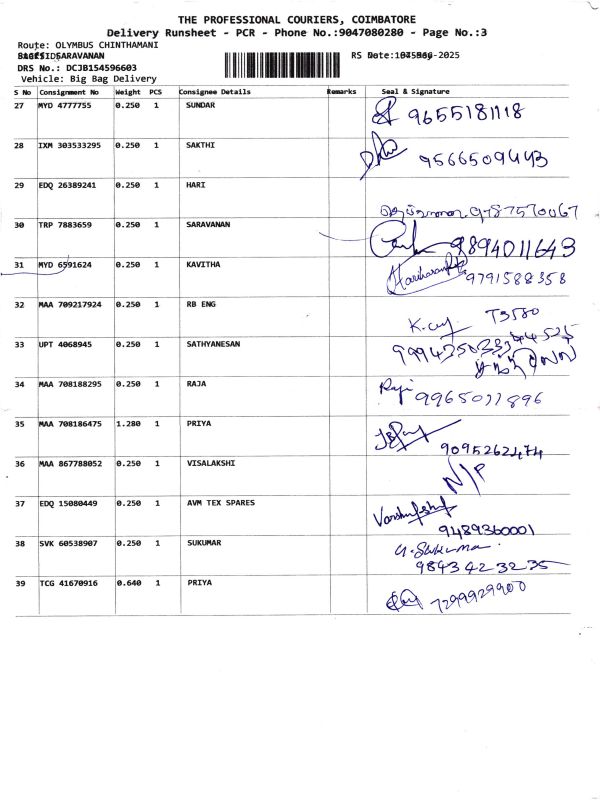 THE PROFESSIONAL COURIERS, COIMBATORE
Delivery Runsheet - PCR - Phone No.:9047080280 - Page No.:3
Route: OLYMBUS CHINTHAMANI
SARAVANAN
RS -2025
DRS No.: DCJB154596603
Vehicle: Big Bag Delivery
S No Consignment No Weight PCS Consignee Details Remarks Seal & Signature
27 MYD 4777755 0.250 1 SUNDAR 9655181118
28 IXM 303533295 0.250 1 SAKTHI 9566509443
29 EDQ 26389241 0.250 1 HARI 9787570067
30 TRP 7883659 0.250 1 SARAVANAN 9894011643
31 MYD 6591624 0.250 1 KAVITHA Hariharan 9791588358
32 MAA 709217924 0.250 1 RB ENG T3580
33 UPT 4068945 0.250 1 SATHYANESAN
34 MAA 708188295 0.250 1 RAJA Raji 9965011896
35 MAA 708186475 1.280 1 PRIYA 9095262474
36 MAA 867788052 0.250 1 VISALAKSHI N/P
37 EDQ 15080449 0.250 1 AVM TEX SPARES 9489360001
38 SVK 60538907 0.250 1 SUKUMAR 9843423235
39 TCG 41670916 0.640 1 PRIYA 7299929900